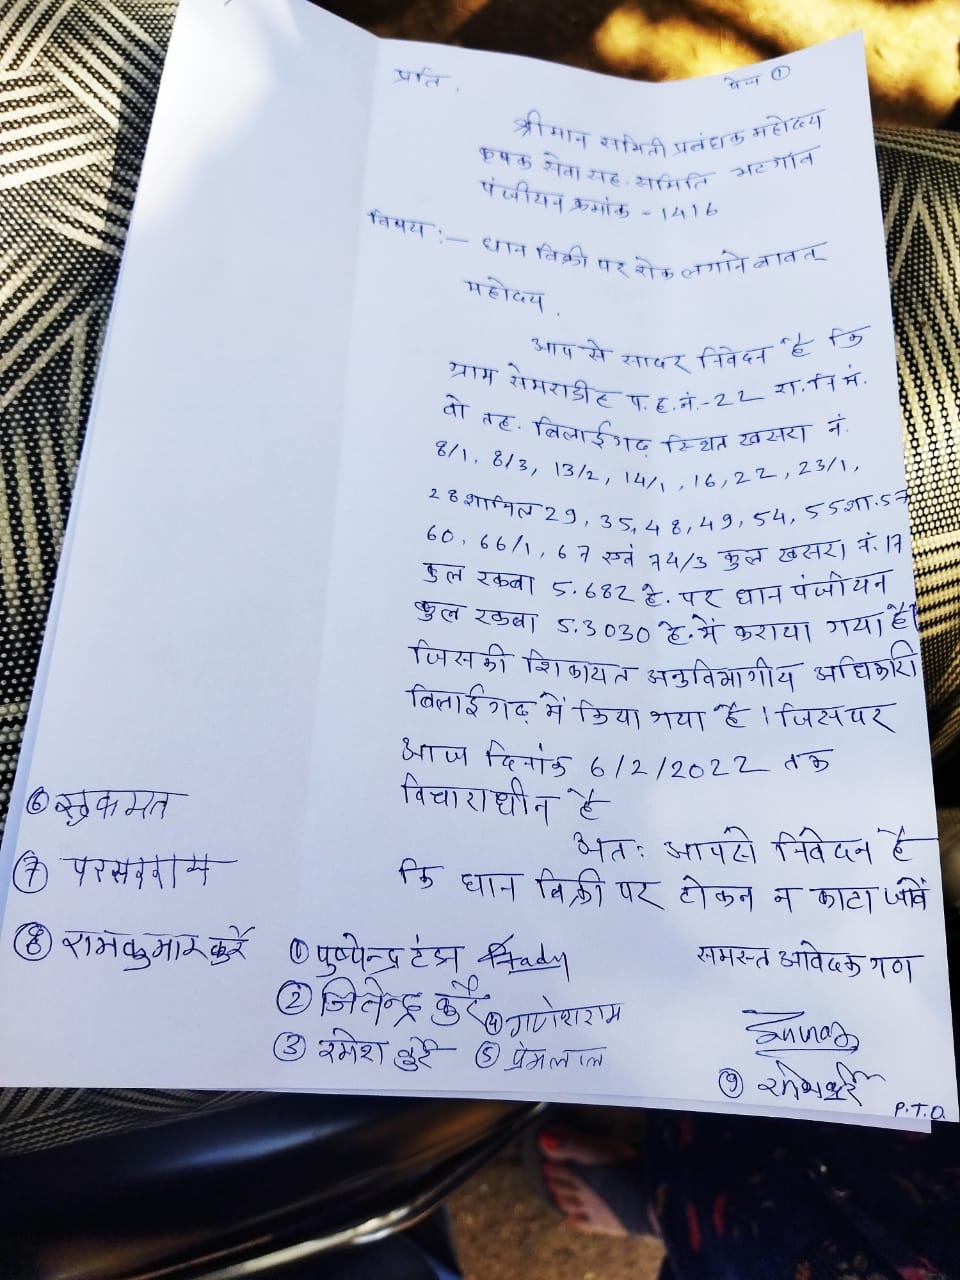 पेज ①
प्रति,
श्रीमान समिती प्रबंधक महोदय
कृषक सेवा सह. समिति भटगांव
पंजीयन क्रमांक - 1416
विषय :- धान बिक्री पर रोक लगाने बावत्
महोदय,
आप से सादर निवेदन है कि
ग्राम सेमराडीह प.ह.नं.-22 रा.नि.मं.
वो तह. बिलाईगढ़ स्थित खसरा नं.
8/1, 8/3, 13/2, 14/1, 16, 22, 23/1,
28 शामिल 29, 35, 48, 49, 54, 55 शा. 57
60, 66/1, 67 एवं 74/3 कुल खसरा नं. 17
कुल रकबा 5.682 हे. पर धान पंजीयन
कुल रकबा 5.3030 हे. में कराया गया है।
जिसकी शिकायत अनुविभागीय अधिकारी
बिलाईगढ़ में किया गया है । जिसपर
आज दिनांक 6/2/2022 तक
विचाराधीन है
अतः आपसे निवेदन है
कि धान बिक्री पर टोकन न काटा जावें
समस्त आवेदक गण
① पुष्पेन्द्र टंडन
② जितेन्द्र कुर्रे
③ रमेश कुर्रे
④ गणेशराम
⑤ प्रेमलाल
⑥ सुकमत
⑦ परसराम
⑧ रामकुमार कुर्रे
⑨
P.T.O.